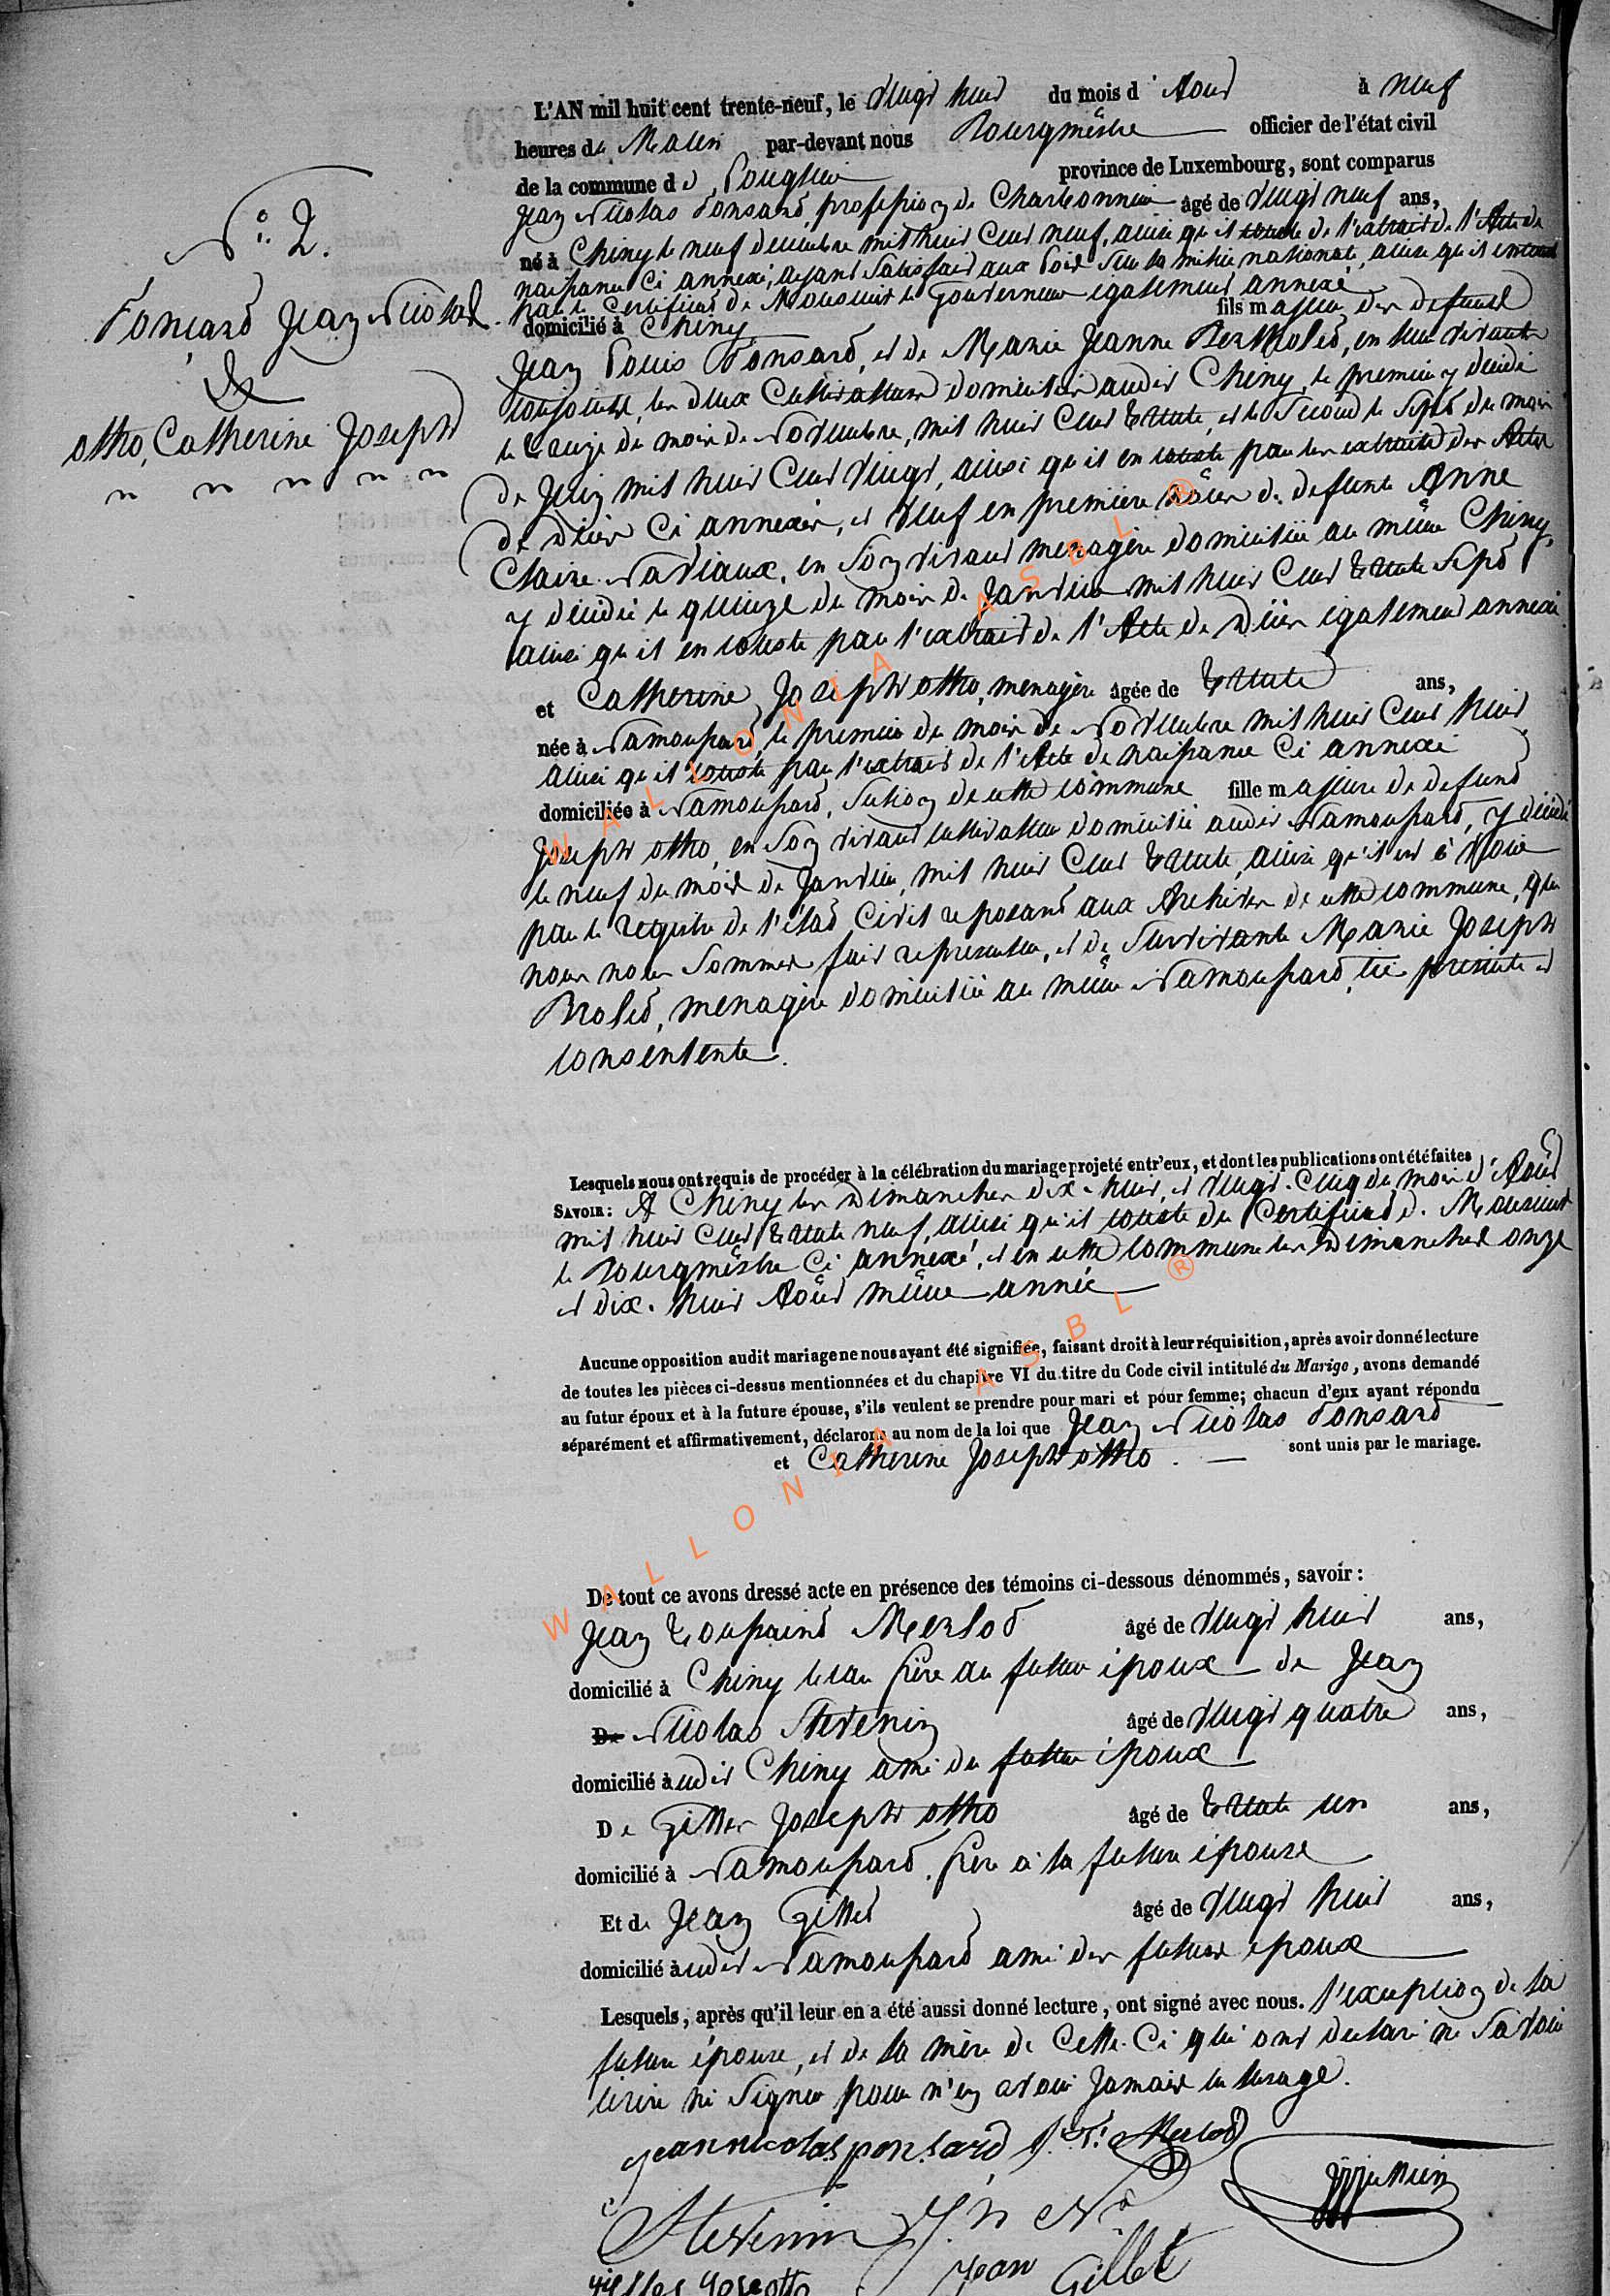 N.° 2.
Ponsard Jean Nicolas
&
Otho, Catherine Joseph
L'AN mil huit cent trente-neuf, le vingt huit du mois d'Aout à neuf
heures de Matin par-devant nous Bourgmêstre officier de l'état civil
de la commune de province de Luxembourg, sont comparus
Jean Nicolas Ponsard, profession de Charbonnier âgé de vingt neuf ans,
né à Chiny le neuf decembre mil huit Cent neuf, ainsi qu'il conste de l'extrait de l'Acte de
naissance Ci annexé, ayant Satisfait aux Loix Sur la milice nationale, ainsi qu'il conste
par le Certificat de Monsieur le Gouverneur egalement annexé
domicilié à Chiny fils majeur des defunts
Jean Louis Ponsard, et de Marie Jeanne Bertholet, en leur vivant
conjoints, les deux Cultivateurs domiciliés audit Chiny, le premier y décédé
le treize du mois de Novembre, mil huit Cent trente, et la Second le Sept du mois
de Juin mil huit Cent vingt, ainsi qu'il en conste par les extraits des Actes
de décès Ci annexés, et veuf en première nôces de defunte Anne
Claire Naviaux, en Son vivant menagère domiciliée au même Chiny,
y décédée le quinze du mois de Janvier mil huit Cent trente Sept
ainsi qu'il en conste par l'extrait de l'Acte de décès egalement annexé
et Catherine Joseph otho, menagère âgée de trente ans,
née à Lamouhard, le premier du mois de Novembre mil huit Cent huit
ainsi qu'il conste par l'extrait de l'Acte de naissance Ci annexé
domiciliée à Namoussart, Section de cette commune fille majeure de defunt
Joseph otho, en Son vivant cultivateur domicilié audit Namoussart, y décédé
le neuf du mois de Janvier, mil huit Cent trente, ainsi qu'il en
par le registre de l'état Civil reposant aux Archives de cette commune, que
nous nous Sommes fait representer, et de Survivante Marie Joseph
menagère domiciliée au même Namoussart, ici présente et
consentente.
Lesquels nous ont requis de procéder à la célébration du mariage projeté entr'eux, et dont les publications ont été faites
SAVOIR: A Chiny les Dimanches dix-huit, et vingt-Cinq du mois d'Août
mil huit Cent trente neuf, ainsi qu'il conste du Certificat de Monsieur
le Bourgmêstre Ci annexé, et en cette commune les Dimanches onze
et dix-huit Août même année
Aucune opposition audit mariage ne nous ayant été signifiée, faisant droit à leur réquisition, après avoir donné lecture
de toutes les pièces ci-dessus mentionnées et du chapitre VI du titre du Code civil intitulé du Marige, avons demandé
au futur époux et à la future épouse, s'ils veulent se prendre pour mari et pour femme; chacun d'eux ayant répondu
séparément et affirmativement, déclarons au nom de la loi que Jean Nicolas Ponsard
et Catherine Joseph otho. sont unis par le mariage.
De tout ce avons dressé acte en présence des témoins ci-dessous dénommés, savoir:
Jean toussaint Merlot âgé de vingt huit ans,
domicilié à Chiny beau frère au futur époux de Jean
De Nicolas Stevenin âgé de vingt quatre ans,
domicilié audit Chiny ami du futur époux
De Gilles Joseph otho âgé de trente un ans,
domicilié à Namoussart, frère à la future épouse
Et de Jean Gillet âgé de vingt huit ans,
domicilié audit Namoussart ami des futurs époux
Lesquels, après qu'il leur en a été aussi donné lecture, ont signé avec nous. l'exception de la
future épouse, et de la mère de Celle-Ci qui ont declaré ne Savoir
écrire ni Signer pour n'en avoir Jamais eu usage.
jean nicolas ponsard J. T. Merlot
Stevenin J. N.
jean Gillet
WALLONIA ASBL ®
WALLONIA ASBL ®